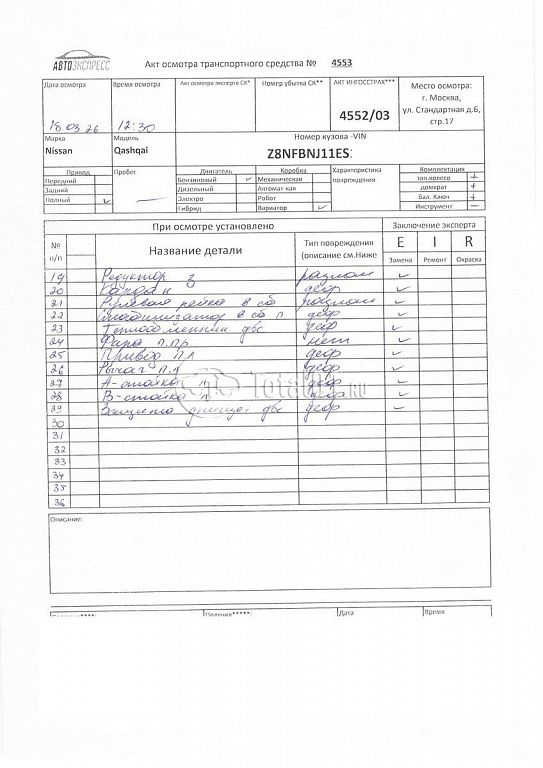 АВТОЭКСПРЕСС
Акт осмотра транспортного средства № 4553
Дата осмотра Время осмотра Акт осмотра эксперта СК* Номер убытка СК** АКТ ИНГОССТРАХ*** Место осмотра:
г. Москва,
ул. Стандартная д.6,
стр.17
18 03 26 12:30 4552/03
Марка Модель Номер кузова -VIN
Nissan Qashqai Z8NFBNJ11ES:
Привод Пробег Двигатель Коробка Характеристика повреждения Комплектация
Передний Бензиновый ✓ Механическая зап.колесо +
Задний Дизельный Автомат кая домкрат +
Полный ✓ Электро Робот бал. Ключ +
Гибрид Вариатор ✓ Инструмент −
При осмотре установлено Заключение эксперта
№ п/п Название детали Тип повреждения (описание см.Ниже E I R
Замена Ремонт Окраска
19 Редуктор з разлом ✓
20 Кардан деф ✓
21 Рулевая рейка в сб разлом ✓
22 Стабилизатор в сб п деф ✓
23 Теплообменник двс деф ✓
24 Фара п.пр нет ✓
25 Привод п.л деф ✓
26 Рычаг п.л деф ✓
27 А-стойка л деф ✓
28 В-стойка л деф ✓
29 Защита днища двс деф ✓
30
31
32
33
34
35
36
Total01.RU
Описание:
Получил*****: Дата Время